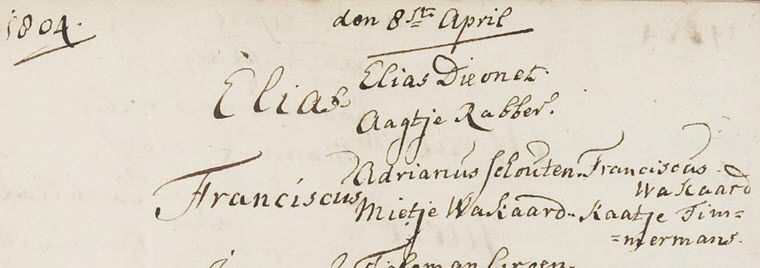 1804. den 8ste April
Elias Elias Dieonet.
Aagtje Rabber.
Franciscus Adrianus Schouten. Franciscus
Wakaard
Mietje Wakaard. Kaatje Tim=
=mermans.